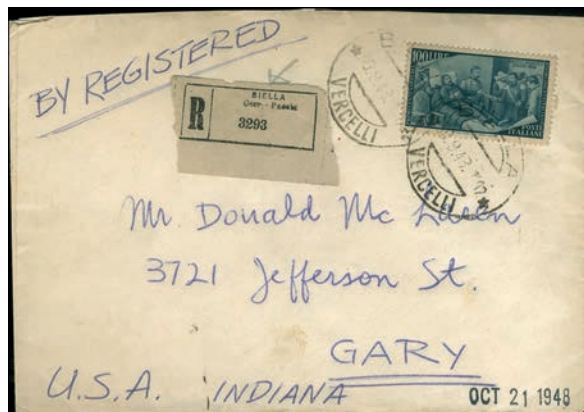 BY REGISTERED
R
BIELLA
Corr. - Pacchi
3293
VERCELLI
100 LIRE
POSTE
ITALIANE
VERCELLI
Mr. Donald Mc
3721 Jefferson St.
GARY
U.S.A. INDIANA
OCT 21 1948